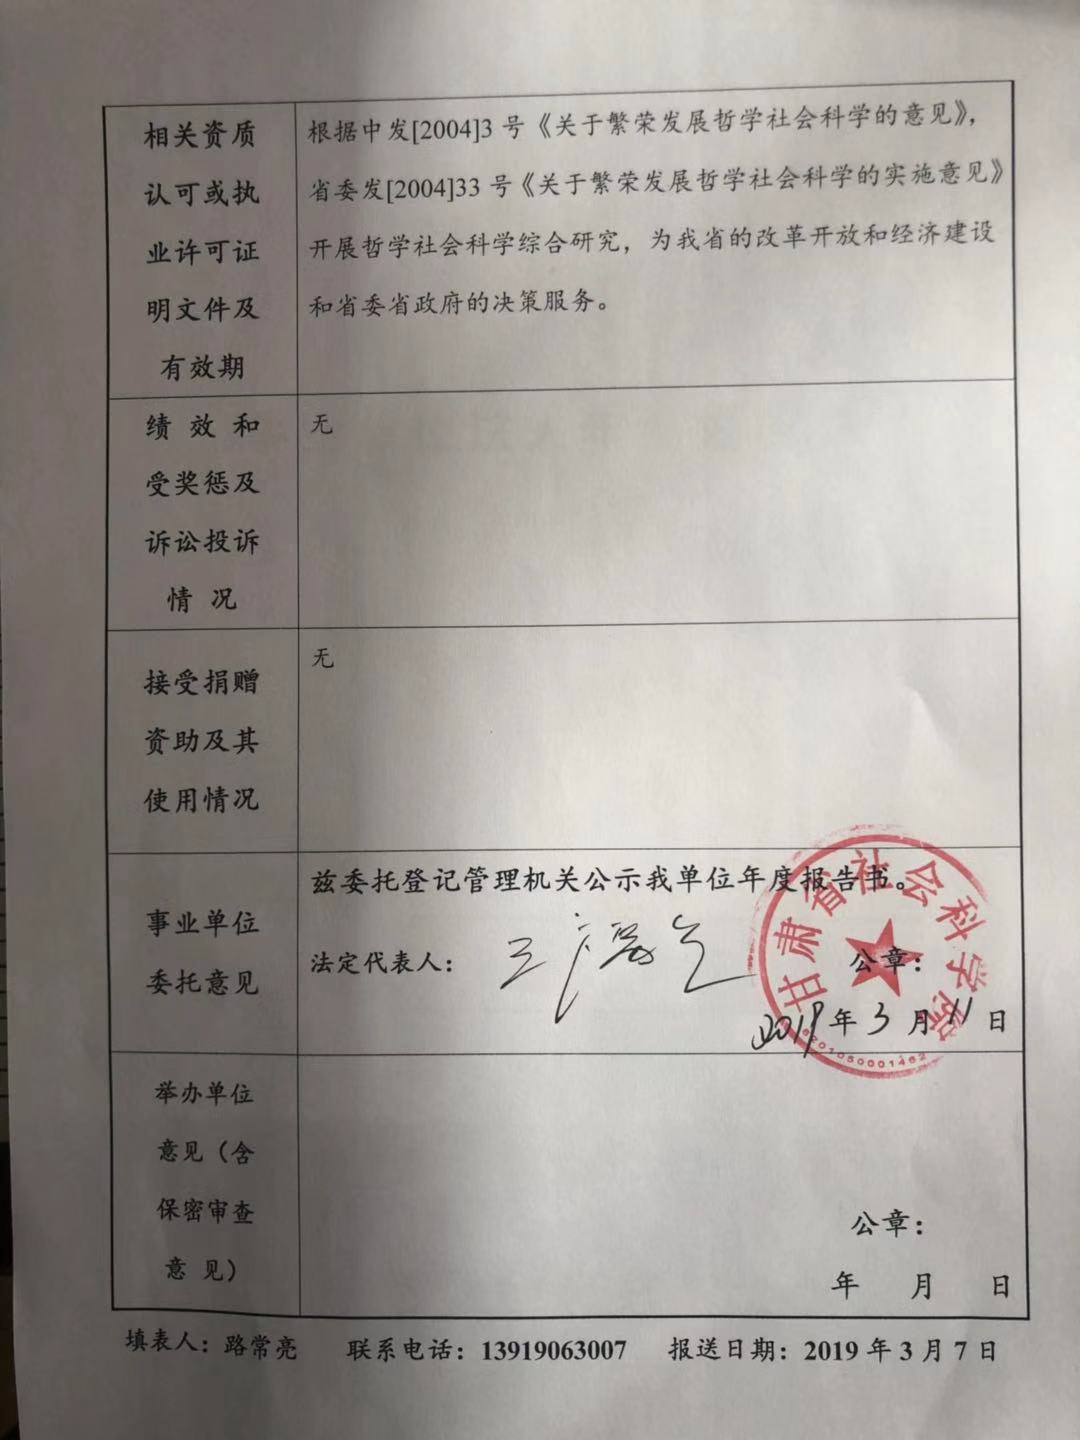 相关资质
认可或执
业许可证
明文件及
有效期
根据中发[2004]3 号《关于繁荣发展哲学社会科学的意见》，
省委发[2004]33 号《关于繁荣发展哲学社会科学的实施意见》
开展哲学社会科学综合研究，为我省的改革开放和经济建设
和省委省政府的决策服务。
绩 效 和
受奖惩及
诉讼投诉
情 况
无
接受捐赠
资助及其
使用情况
无
事业单位
委托意见
兹委托登记管理机关公示我单位年度报告书。
法定代表人：
公章：
2019年 3 月 11 日
甘肃省社会科学院
6201050001462
举办单位
意见（含
保密审查
意 见）
公章：
年 月 日
填表人：路常亮 联系电话：13919063007 报送日期：2019 年 3 月 7 日